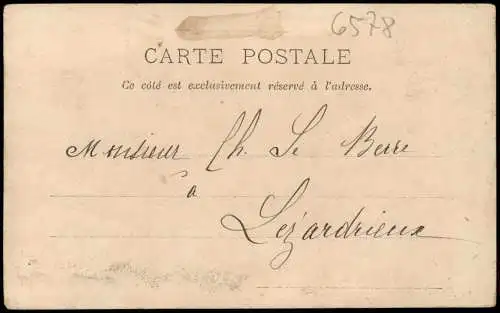 6578
CARTE POSTALE
Ce côté est exclusivement réservé à l'adresse.
Monsieur Ch. Le Berre
à
Lezardrieux